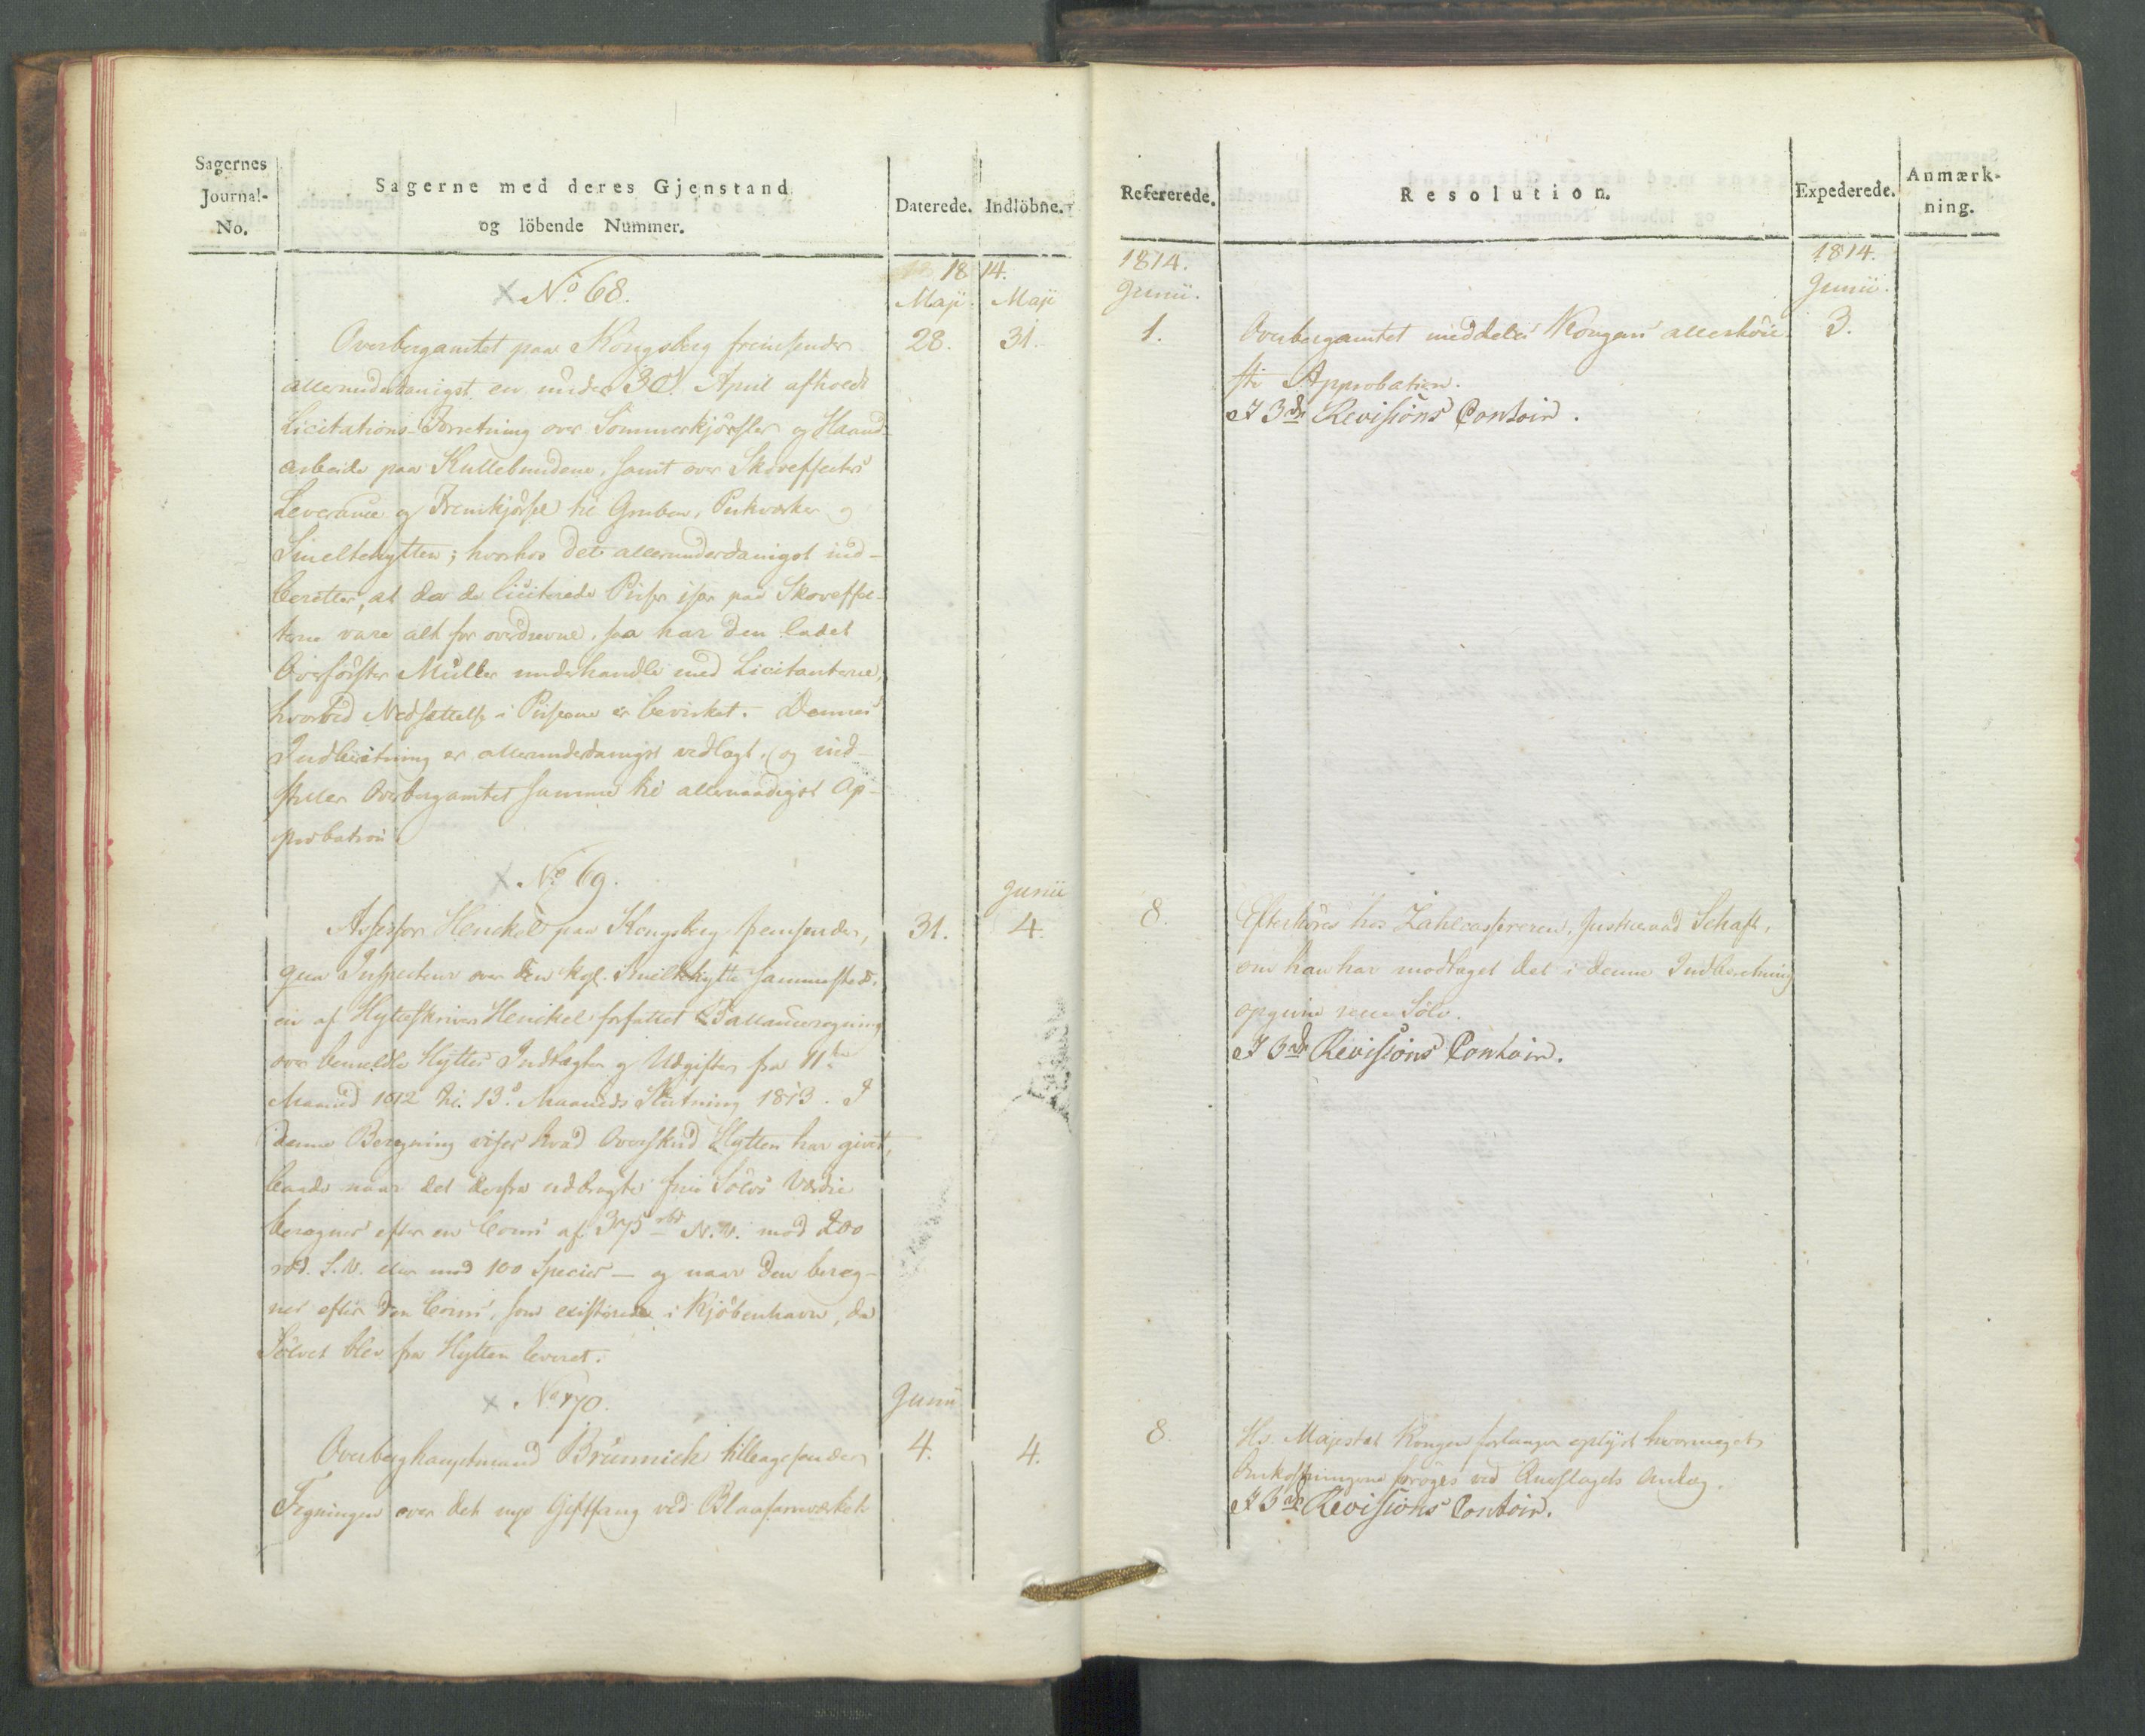 Sagernes
Journal-
No.
Sagerne med deres Gjenstand
og löbende Nummer.
Daterede.
Indlöbne.
1814.
Maji. Maji
No. 68.
28. 31.
Overbergamtet paa Kongsberg fremsender
allerunderdanigst en under 30. April afholdt
Licitations-Forretning over Sommerkjørsler og Haand-
arbeide paa Kullebundene, samt over Skoveffecters
Leverance og Fremkjørsel til Gruben, Pukværker og
Smeltehytten; hvorhos det allerunderdanigst ind-
beretter, at da de liciterede Priser især paa Skoveffec-
terne vare alt for overdrevne, saa har den ladet
Overførster Müller underhandle med Licitanterne,
hvorved Nedsættelse i Priserne er bevirket. Dennes
Indberetning er allerunderdanigst vedlagt, og ind-
stiller Overbergamtet samme til allernaadigst Ap-
probation.
No. 69.
Junii
31. 4.
Assessor Henckel paa Kongsberg fremsender,
qua Inspecteur over den kgl. Smeltehytte sammesteds,
en af Hytteskriver Henckel forfattet Ballanceregning
over bemeldte Hyttes Indtægter og Udgifter fra 11te
Maaned 1812 til 13. Maaneds Slutning 1813. I
denne Beregning viser hvad Overskud Hytten har givet,
baade naar det derfra udbragte fine Sølvs Værdie
beregnes efter en Cours af 375 rbd N.V. mod 200
rbd. S.V. eller mod 100 Species — og naar den bereg-
nes efter den Cours, som existerede i Kjøbenhavn, da
Sølvet blev fra Hytten leveret.
No. 70.
Junii
4. 4.
Overberghauptmand Brünnich tilbagesender
Tegningen over det nye Giftfang ved Blaafarveværket
Refererede.
Resolution.
Expederede.
Anmærk-
ning.
1814.
Junii.
1814.
Junii.
1.
3.
Overbergamtet meddeles Kongens allerhøie-
ste Approbation.
I 3de Revisions Contoir.
8.
Efterhøres hos Zahlcassereren, Justiceraad Schaft,
om han har modtaget det i denne Indberetning
opgivne rene Sølv.
I 3de Revisions Contoir.
8.
Hs. Majestæt Kongen forlanger oplyst hvormeget
Omkostningerne forøges ved Overslagets Anlæg.
I 3de Revisions Contoir.